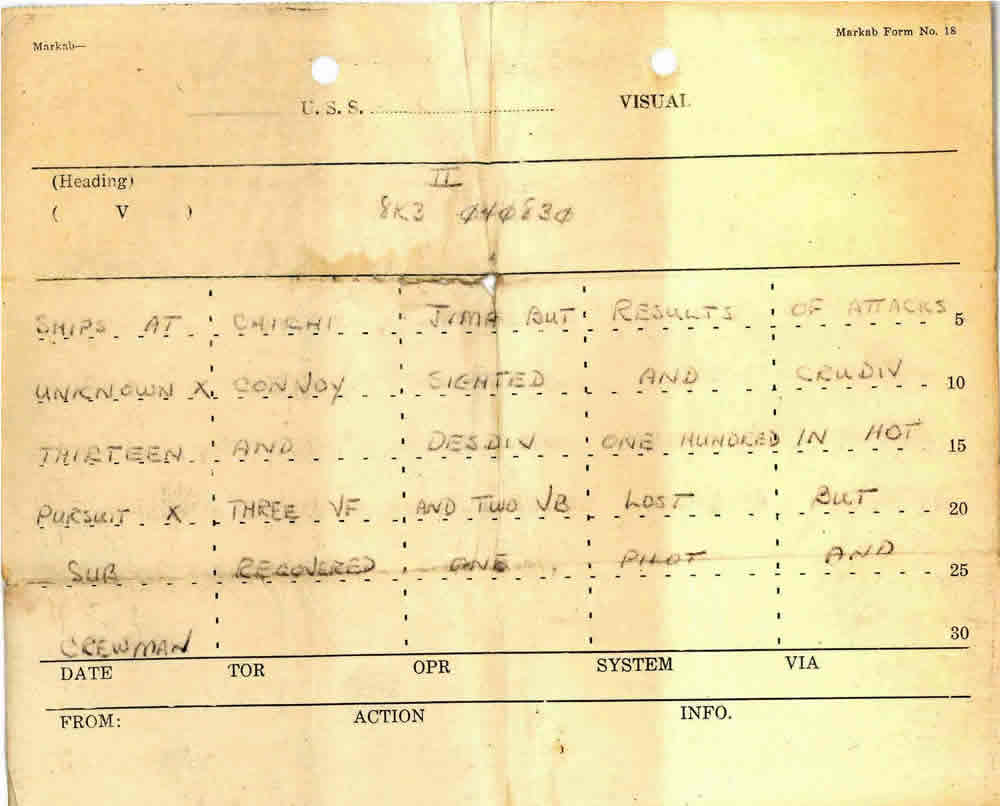 Markab—
Markab Form No. 18
U. S. S. VISUAL
(Heading) II
( V ) 8K3 040830
SHIPS AT CHICHI JIMA BUT RESULTS OF ATTACKS 5
UNKNOWN X CONVOY SIGHTED AND CRUDIV 10
THIRTEEN AND DESDIV ONE HUNDRED IN HOT 15
PURSUIT X THREE VF AND TWO VB LOST BUT 20
SUB RECOVERED ONE PILOT AND 25
CREWMAN 30
DATE TOR OPR SYSTEM VIA
FROM: ACTION INFO.